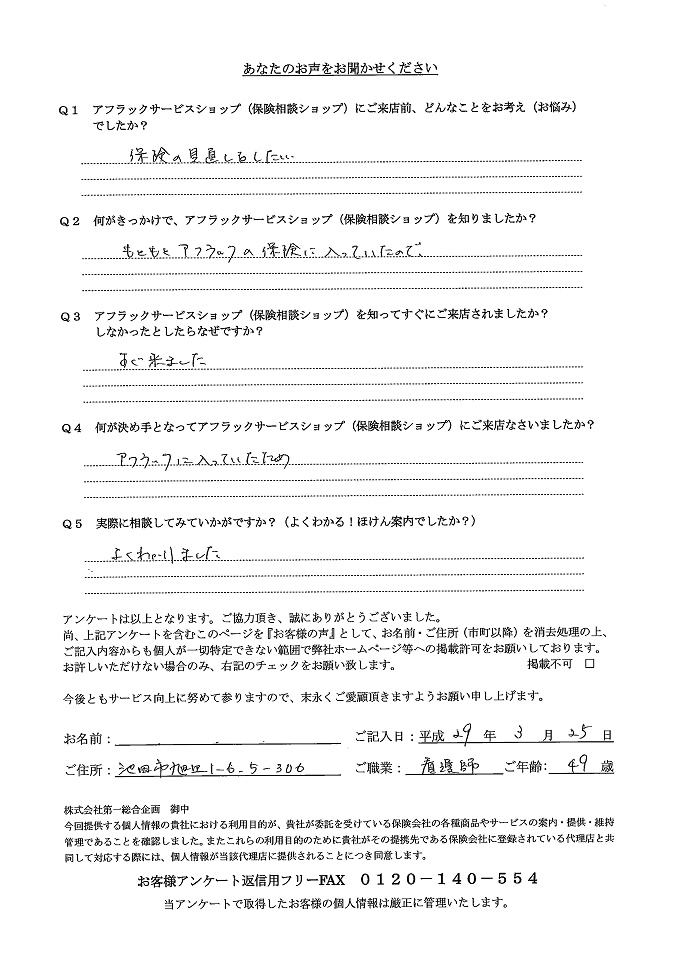 あなたのお声をお聞かせください
Q1 アフラックサービスショップ（保険相談ショップ）にご来店前、どんなことをお考え（お悩み）
でしたか？
保険の見直しをしたい
Q2 何がきっかけで、アフラックサービスショップ（保険相談ショップ）を知りましたか？
もともとアフラックの保険に入っていたので、
Q3 アフラックサービスショップ（保険相談ショップ）を知ってすぐにご来店されましたか？
しなかったとしたらなぜですか？
すぐ来ました
Q4 何が決め手となってアフラックサービスショップ（保険相談ショップ）にご来店なさいましたか？
アフラックに入っていたため
Q5 実際に相談してみていかがですか？（よくわかる！ほけん案内でしたか？）
よくわかりました
アンケートは以上となります。ご協力頂き、誠にありがとうございました。
尚、上記アンケートを含むこのページを『お客様の声』として、お名前・ご住所（市町以降）を消去処理の上、
ご記入内容からも個人が一切特定できない範囲で弊社ホームページ等への掲載許可をお願いしております。
お許しいただけない場合のみ、右記のチェックをお願い致します。 掲載不可 □
今後ともサービス向上に努めて参りますので、末永くご愛顧頂きますようお願い申し上げます。
お名前： ご記入日：平成 29 年 3 月 25 日
ご住所：池田市旭丘1-6-5-306 ご職業： 看護師 ご年齢： 49 歳
株式会社第一総合企画 御中
今回提供する個人情報の貴社における利用目的が、貴社が委託を受けている保険会社の各種商品やサービスの案内・提供・維持
管理であることを確認しました。またこれらの利用目的のために貴社がその提携先である保険会社に登録されている代理店と共
同して対応する際には、個人情報が当該代理店に提供されることにつき同意します。
お客様アンケート返信用フリーFAX 0120－140－554
当アンケートで取得したお客様の個人情報は厳正に管理いたします。